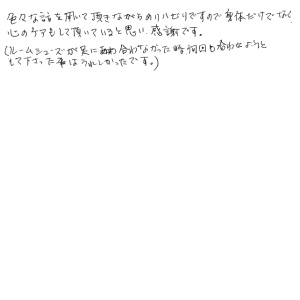 色々な話を聞いて頂きながらのリハビリですので身体だけでなく
心のケアもして頂いていると思い感謝です。
(ルームシューズが足に合わなかった時何回も合わせようと
して下さった事はうれしかったです。)